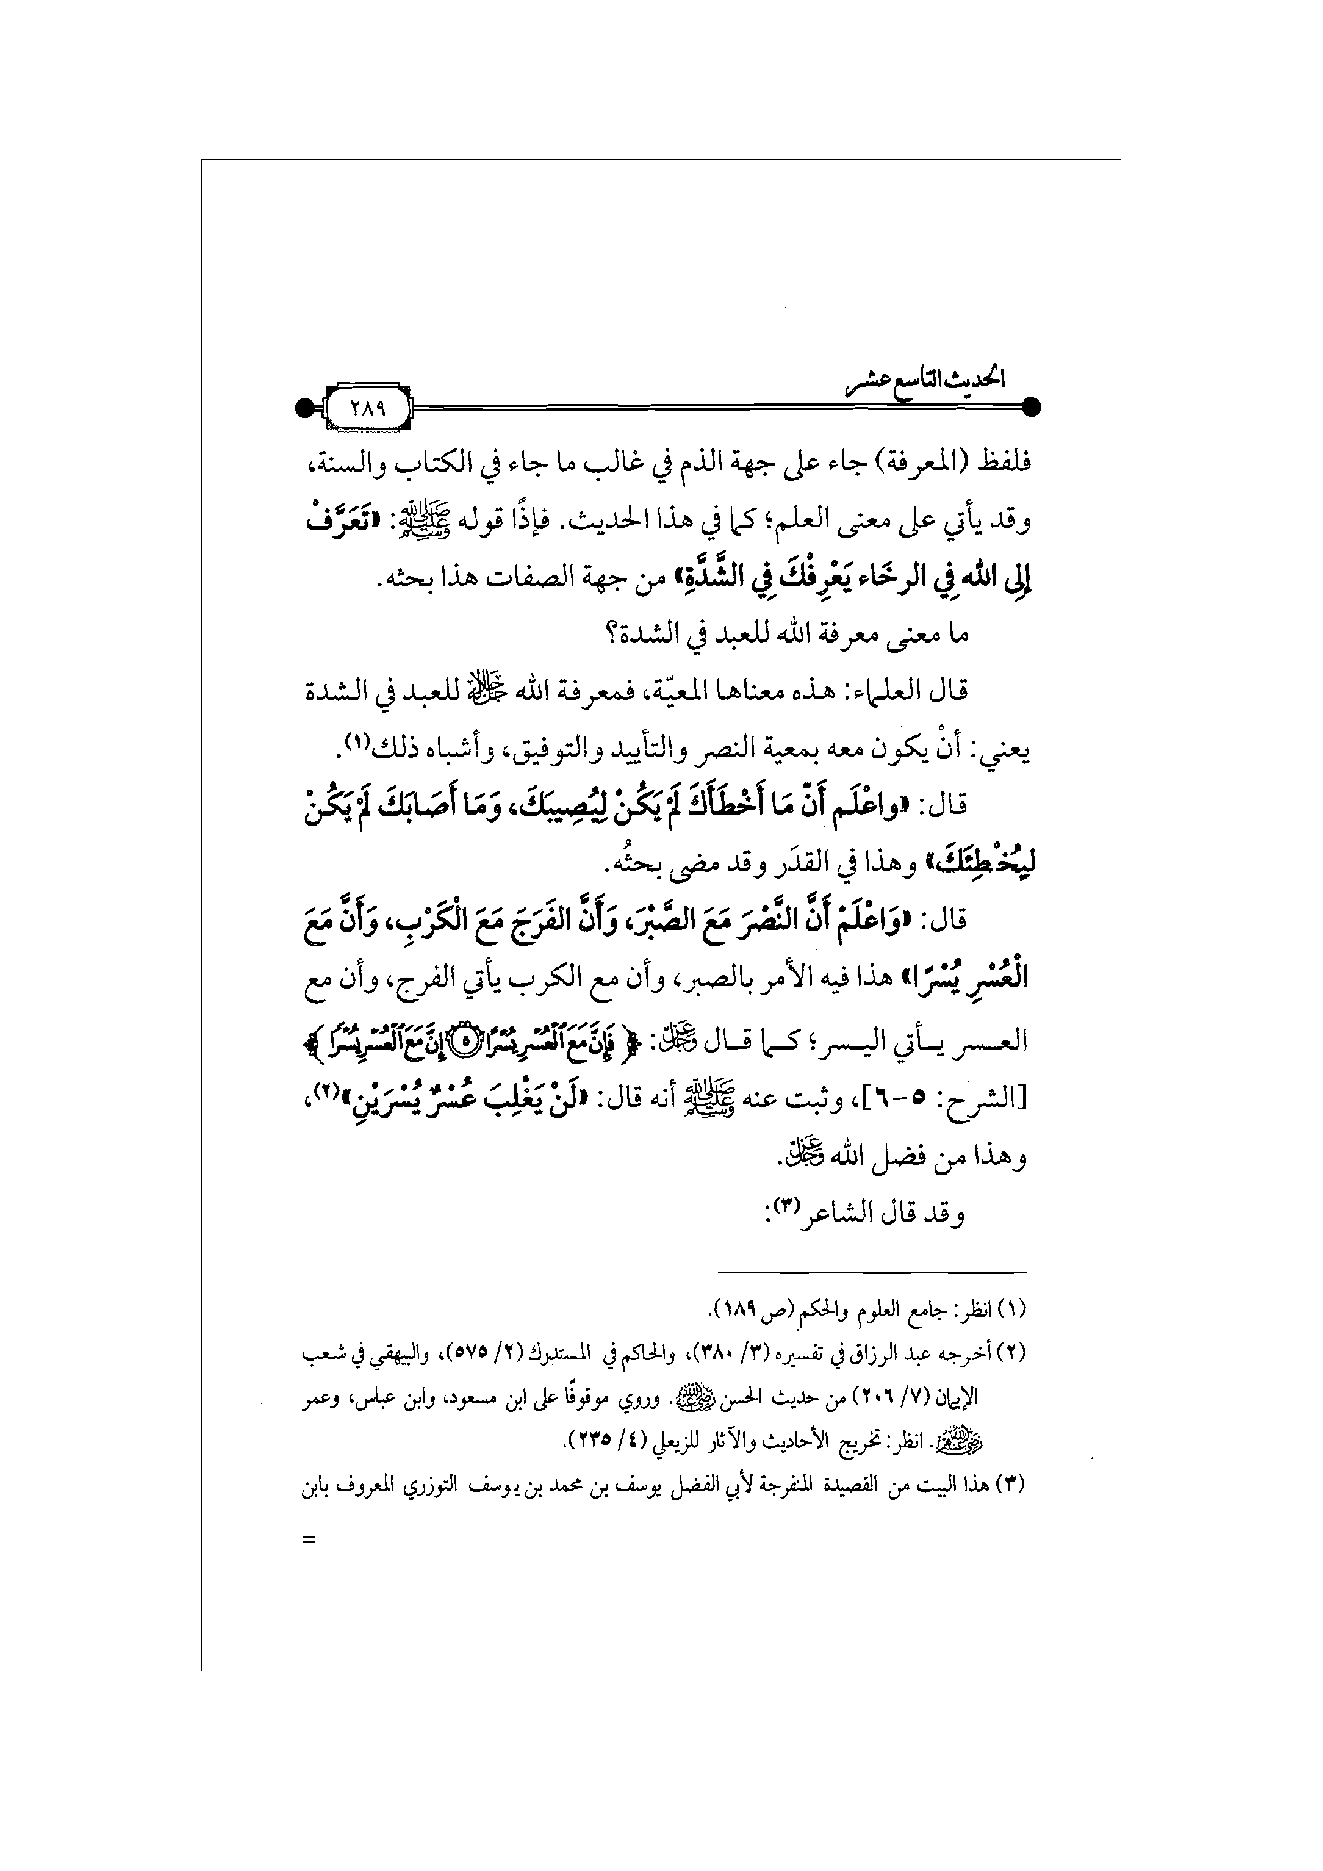 الحديث التاسع عشر
٢٨٩
فلفظ (المعرفة) جاء على جهة الذم في غالب ما جاء في الكتاب والسنة،
وقد يأتي على معنى العلم؛ كما في هذا الحديث. فإذًا قوله ﷺ: «تَعَرَّفْ
إلى الله فِي الرخَاء يَعْرِفْكَ فِي الشَّدَّةِ» من جهة الصفات هذا بحثه.
ما معنى معرفة الله للعبد في الشدة؟
قال العلماء: هذه معناها المعيّة، فمعرفة الله ﷻ للعبد في الشدة
يعني: أنْ يكون معه بمعية النصر والتأييد والتوفيق، وأشباه ذلك(١).
قال: «واعْلَم أَنّ مَا أَخْطَأَكَ لَمْ يَكُنْ لِيُصِيبَكَ، وَمَا أَصَابَكَ لَمْ يَكُنْ
لِيُخْطِئَكَ» وهذا في القدَر وقد مضى بحثُه.
قال: «وَاعْلَمْ أَنَّ النَّصْرَ مَعَ الصَّبْرَ، وَأَنَّ الفَرَجَ مَعَ الْكَرْبِ، وَأَنَّ مَعَ
الْعُسْرِ يُسْرًا» هذا فيه الأمر بالصبر، وأن مع الكرب يأتي الفرج، وأن مع
العسر يأتي اليسر؛ كما قال عز وجل: ﴿فَإِنَّ مَعَ ٱلْعُسْرِ يُسْرًا ۝٥ إِنَّ مَعَ ٱلْعُسْرِ يُسْرًا﴾
[الشرح: ٥-٦]، وثبت عنه ﷺ أنه قال: «لَنْ يَغْلِبَ عُسْرٌ يُسْرَيْنِ»(٢)،
وهذا من فضل الله عز وجل.
وقد قال الشاعر(٣):
(١) انظر: جامع العلوم والحكم (ص ١٨٩).
(٢) أخرجه عبد الرزاق في تفسيره (٣/ ٣٨٠)، والحاكم في المستدرك (٢/ ٥٧٥)، والبيهقي في شعب
الإيمان (٧/ ٢٠٦) من حديث الحسن رضي الله عنه. وروي موقوفًا على ابن مسعود، وابن عباس، وعمر
رضي الله عنهم. انظر: تخريج الأحاديث والآثار للزيعلي (٤/ ٢٣٥).
(٣) هذا البيت من القصيدة المنفرجة لأبي الفضل يوسف بن محمد بن يوسف التوزري المعروف بابن
=